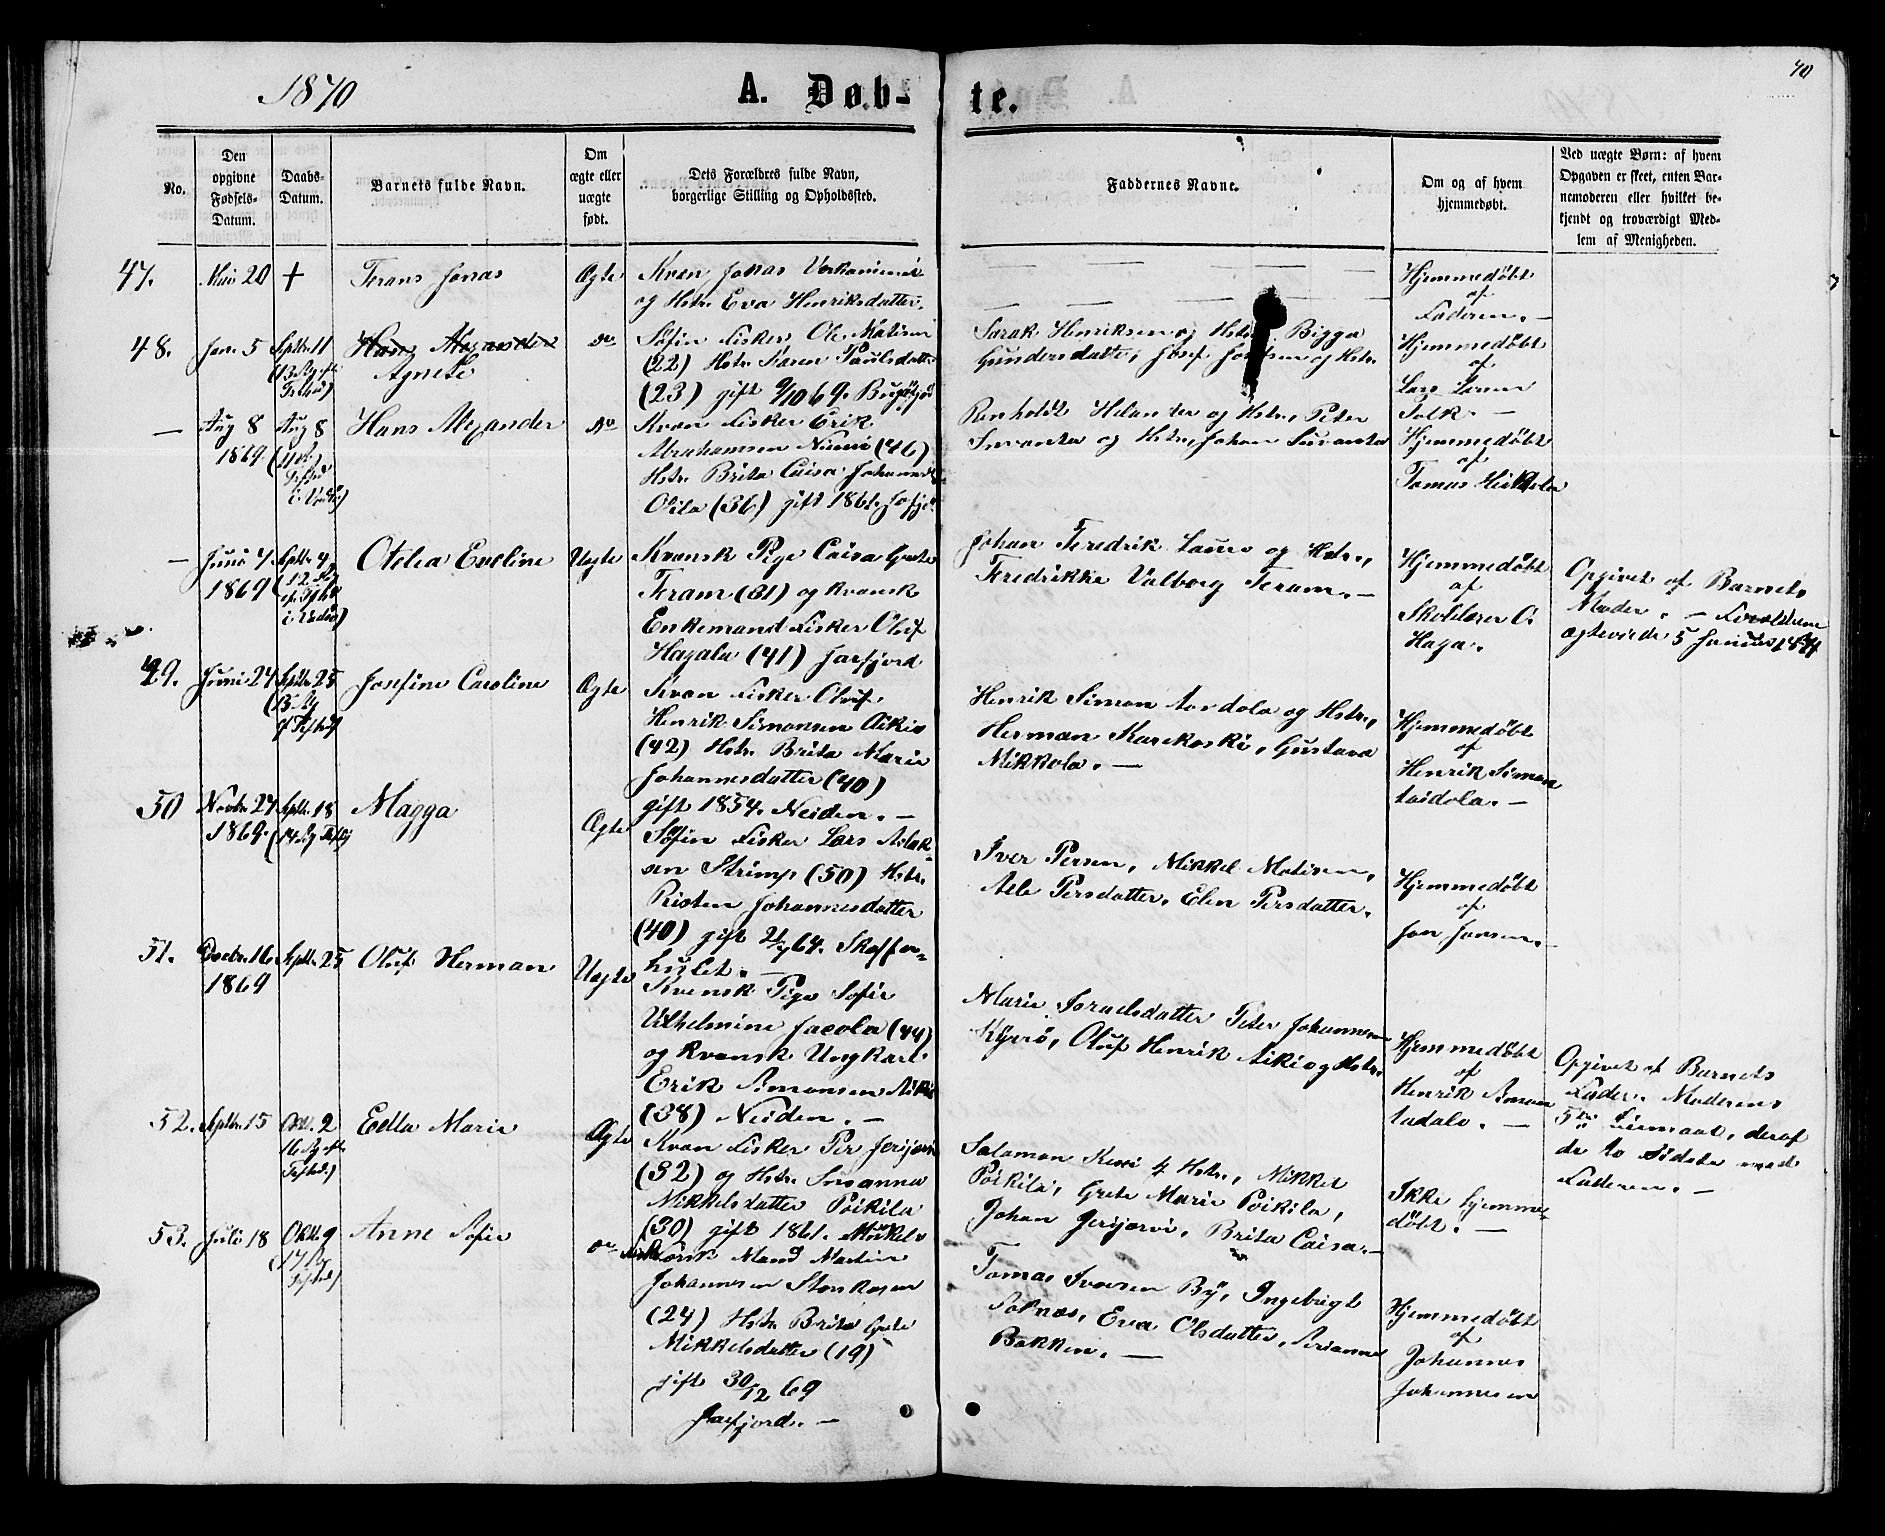 1870
A. Døb-
te.
40
No.
Den
opgivne
Fødsels-
Datum.
Daabs-
Datum.
Barnets fulde Navn.
Om
ægte eller
uægte
født.
Dets Forældres fulde Navn,
borgerlige Stilling og Opholdssted.
Faddernes Navne.
Om og af hvem
hjemmedøbt.
Ved uægte Børn: af hvem
Opgaven er skeet, enten Bar-
nemoderen eller hvilket be-
kjendt og troværdigt Med-
lem af Menigheden.
47.
Mai 20
+
Frans Jonas
Ægte
Kvæn Jonas
og Hstr. Eva Henriksdatter.
Hjemmedøbt
af
Faderen. —
48.
Jan. 5
Septbr. 11
Hans Alexander
Agnete
do
Søfin Fisker Ole Matisen
(22) Hstr. Karen Paulsdatter
(23) gift 9/10 69. Bugøfjord
Sarak Henriksen og Hstr. Bigga
Gundersdatter, Josef Josefsen og Hstr.
Hjemmedøbt
af
Lars Larsen
Solk. —
—
Aug 8
1869.
Aug 8
Hans Alexander
do
Kvæn Fisker Erik
Abrahamsen Niemi (46)
Hstr. Brita Caisa Johannesdtr
Oila (36) gift 1861. Jarfjord
Renholdt Helander og Hstr., Peter
Suvanta og Hstr., Johan Suvanta
Hjemmedøbt
af
Tomas Heikkela
—
Juni 4
1869
Septbr. 4
Otelia Eveline
Uægte
Kvænsk Pige Caisa Grete
Feram (31) og kvænsk
Enkemand Fisker Oluf
Hagala (41) Jarfjord
Johan Fredrik Lauro og Hstr.,
Fredrikke Valborg Feram. —
Hjemmedøbt
af
Skolelærer O.
Haga.
Opgivet af Barnets
Moder. — Forældrene
ægteviede 5 Januar 1871
49.
Juni 24
Septbr. 25
Josefine Caroline
Ægte
Kvæn Fisker Oluf
Henrik Simonsen Aikio
(42) Hstr. Brita Marie
Johannesdatter (40)
gift 1854. Neiden. —
Henrik Simon Aardola og Hstr.,
Herman Karekoski, Gustava
Mikkola. —
Hjemmedøbt
af
Henrik Simon
Aardola. —
50
Novbr. 27
1869.
Septbr. 18
Magga
Ægte
Søfin Fisker Lars Aslak-
sen Strimp (50) Hstr.
Risten Johannesdatter
(40) gift 64. Skoffer-
hullet. —
Iver Persen, Mikkel Matisen,
Aile Persdatter, Elen Persdatter.
Hjemmedøbt
af
Jon Jonsen. —
51.
Decbr. 16.
1869
Septbr. 25
Oluf Herman
Uægte
Kvensk Pige Sofie
Vilhelmine Jacola (44)
og kvænsk Ungkarl
Erik Simonsen Aikio
(38) Neiden. —
Marie Israelsdatter Peter Johannesen
Kyrrö, Oluf Henrik Aikio og Hstr.
Hjemmedøbt
af
Henrik Simon
Aadola. —
Opgivet af Barnets
Fader. Moderens
5te Leiermaal, deraf
de to sidste med
Faderen. —
52.
Septbr. 15
Oct. 2
Edla Marie
Ægte
Kvæn Fisker Per Jerijervi
(32) og Hstr. Susanna
Mikkelsdatter Poikila
(30) gift 1861.
Salamon Kessi & Hstr., Mikkel
Poikila, Grete Marie Poikila,
Johan Jerijervi, Brita Caisa. —
Ikke hjemme-
døbt. —
53.
Juli 18
Oktb. 9
Anne Sofie
do
Norsk Mand Martin
Johannesen Stenkosen
(24) Hstr. Brita Grete
Mikkelsdatter (19)
gift 30/12 69
Jarfjord. —
Tomas Iversen By, Ingebrigt
Solnæs, Eva Olsdatter, Serianna
Bakken. —
Hjemmedøbt
af
Johannes
Johannesen